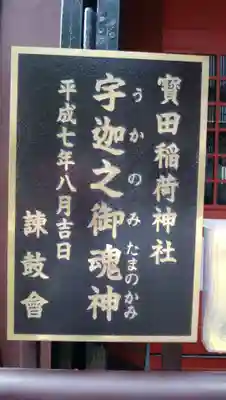 寳田稲荷神社
宇迦之御魂神
うかのみたまのかみ
平成七年八月吉日
諌鼓會